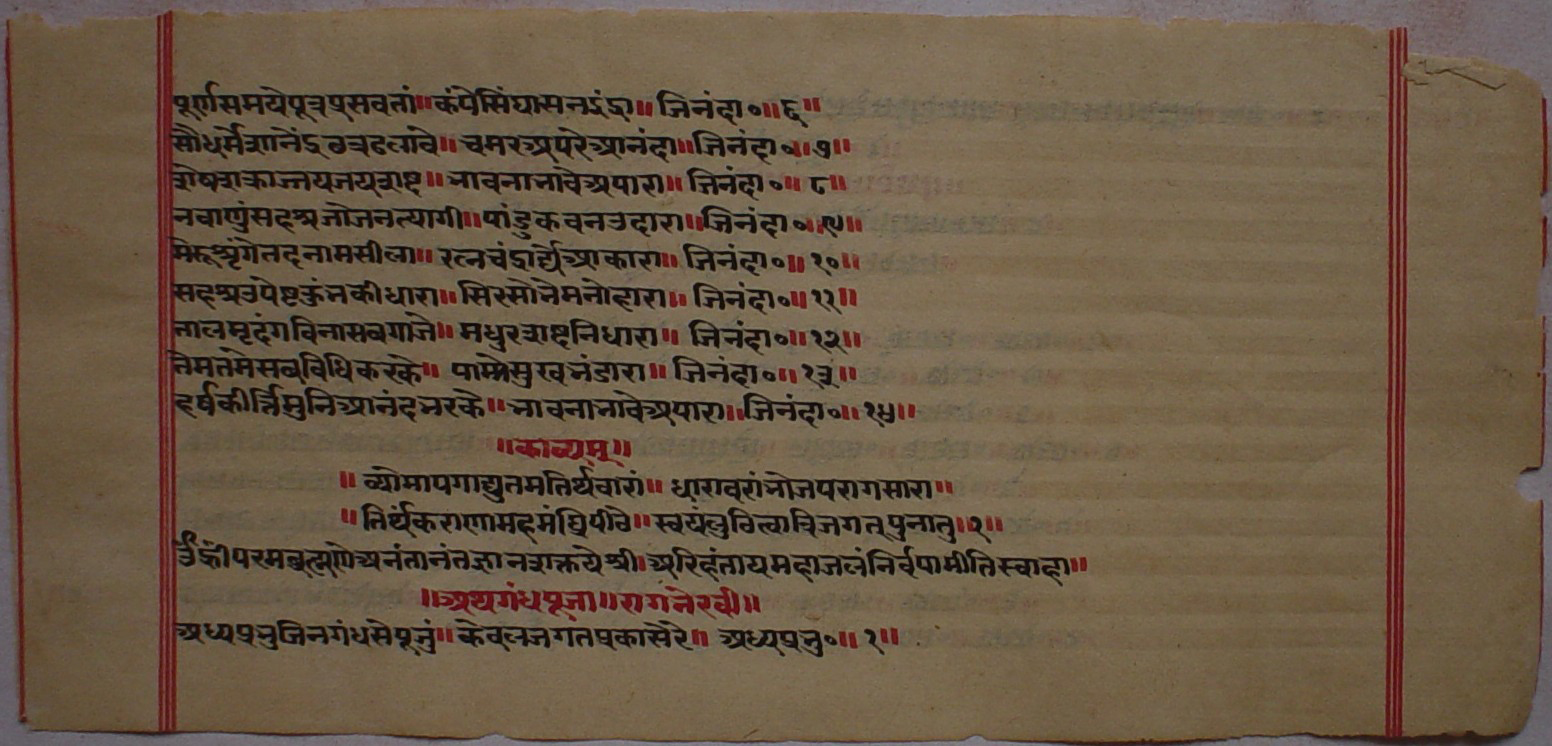 पूर्णसमयेपूत्रप्रसवतां॥ कंपेसिंघासनइंद्रा॥ जिनंदा०॥ ६॥
सौधर्मेशानेंद्रछत्रढलावे॥ चमरअपरेआनंदा॥ जिनंदा०॥ ७॥
शेषशक्राजयजयशष्ट॥ भावनाभावेअपारा॥ जिनंदा०॥ ८॥
नवाणुंसहश्रजोजनत्यागी॥ पांडुकवनउदारा॥ जिनंदा०॥ ९॥
मेरूश्रृंगेतदनामसीला॥ रत्नचंद्रार्द्धेआकारा॥ जिनंदा०॥ १०॥
सहश्रउपेष्टकुंभकीधारा॥ सिरसोभेमनोहारा॥ जिनंदा०॥ ११॥
तालमृदंगविनासबगाजे॥ मधुरशष्टनिधारा॥ जिनंदा०॥ १२॥
तैमतमेसबविधिकरके॥ पामोसुखभंडारा॥ जिनंदा०॥ १३॥
हर्षकीर्त्तिमुनिआनंदभरके॥ भावनाभावेअपारा॥ जिनंदा०॥ १४॥
॥काव्यम्॥
॥ व्योमापगाद्युतमतिर्थवारां॥ धारावरांभोजपरागसारा॥
॥ तिर्थकराणामहमंघ्रिपीठे॥ स्वयंभुवित्वात्रिजगत्पुनातु॥ १॥
उँह्रीँपरमब्रह्मणेअनंतानंतज्ञानशक्तयेश्री।अरिहंतायमहाजलंनिर्वपामीतिस्वाहा॥
॥अथगंधपूजा॥ रागभेरवी॥
अध्यप्रभुजिनगंधसेपूजुं॥ केवलजगतप्रकासेरे॥ अध्यप्रभु०॥ १॥